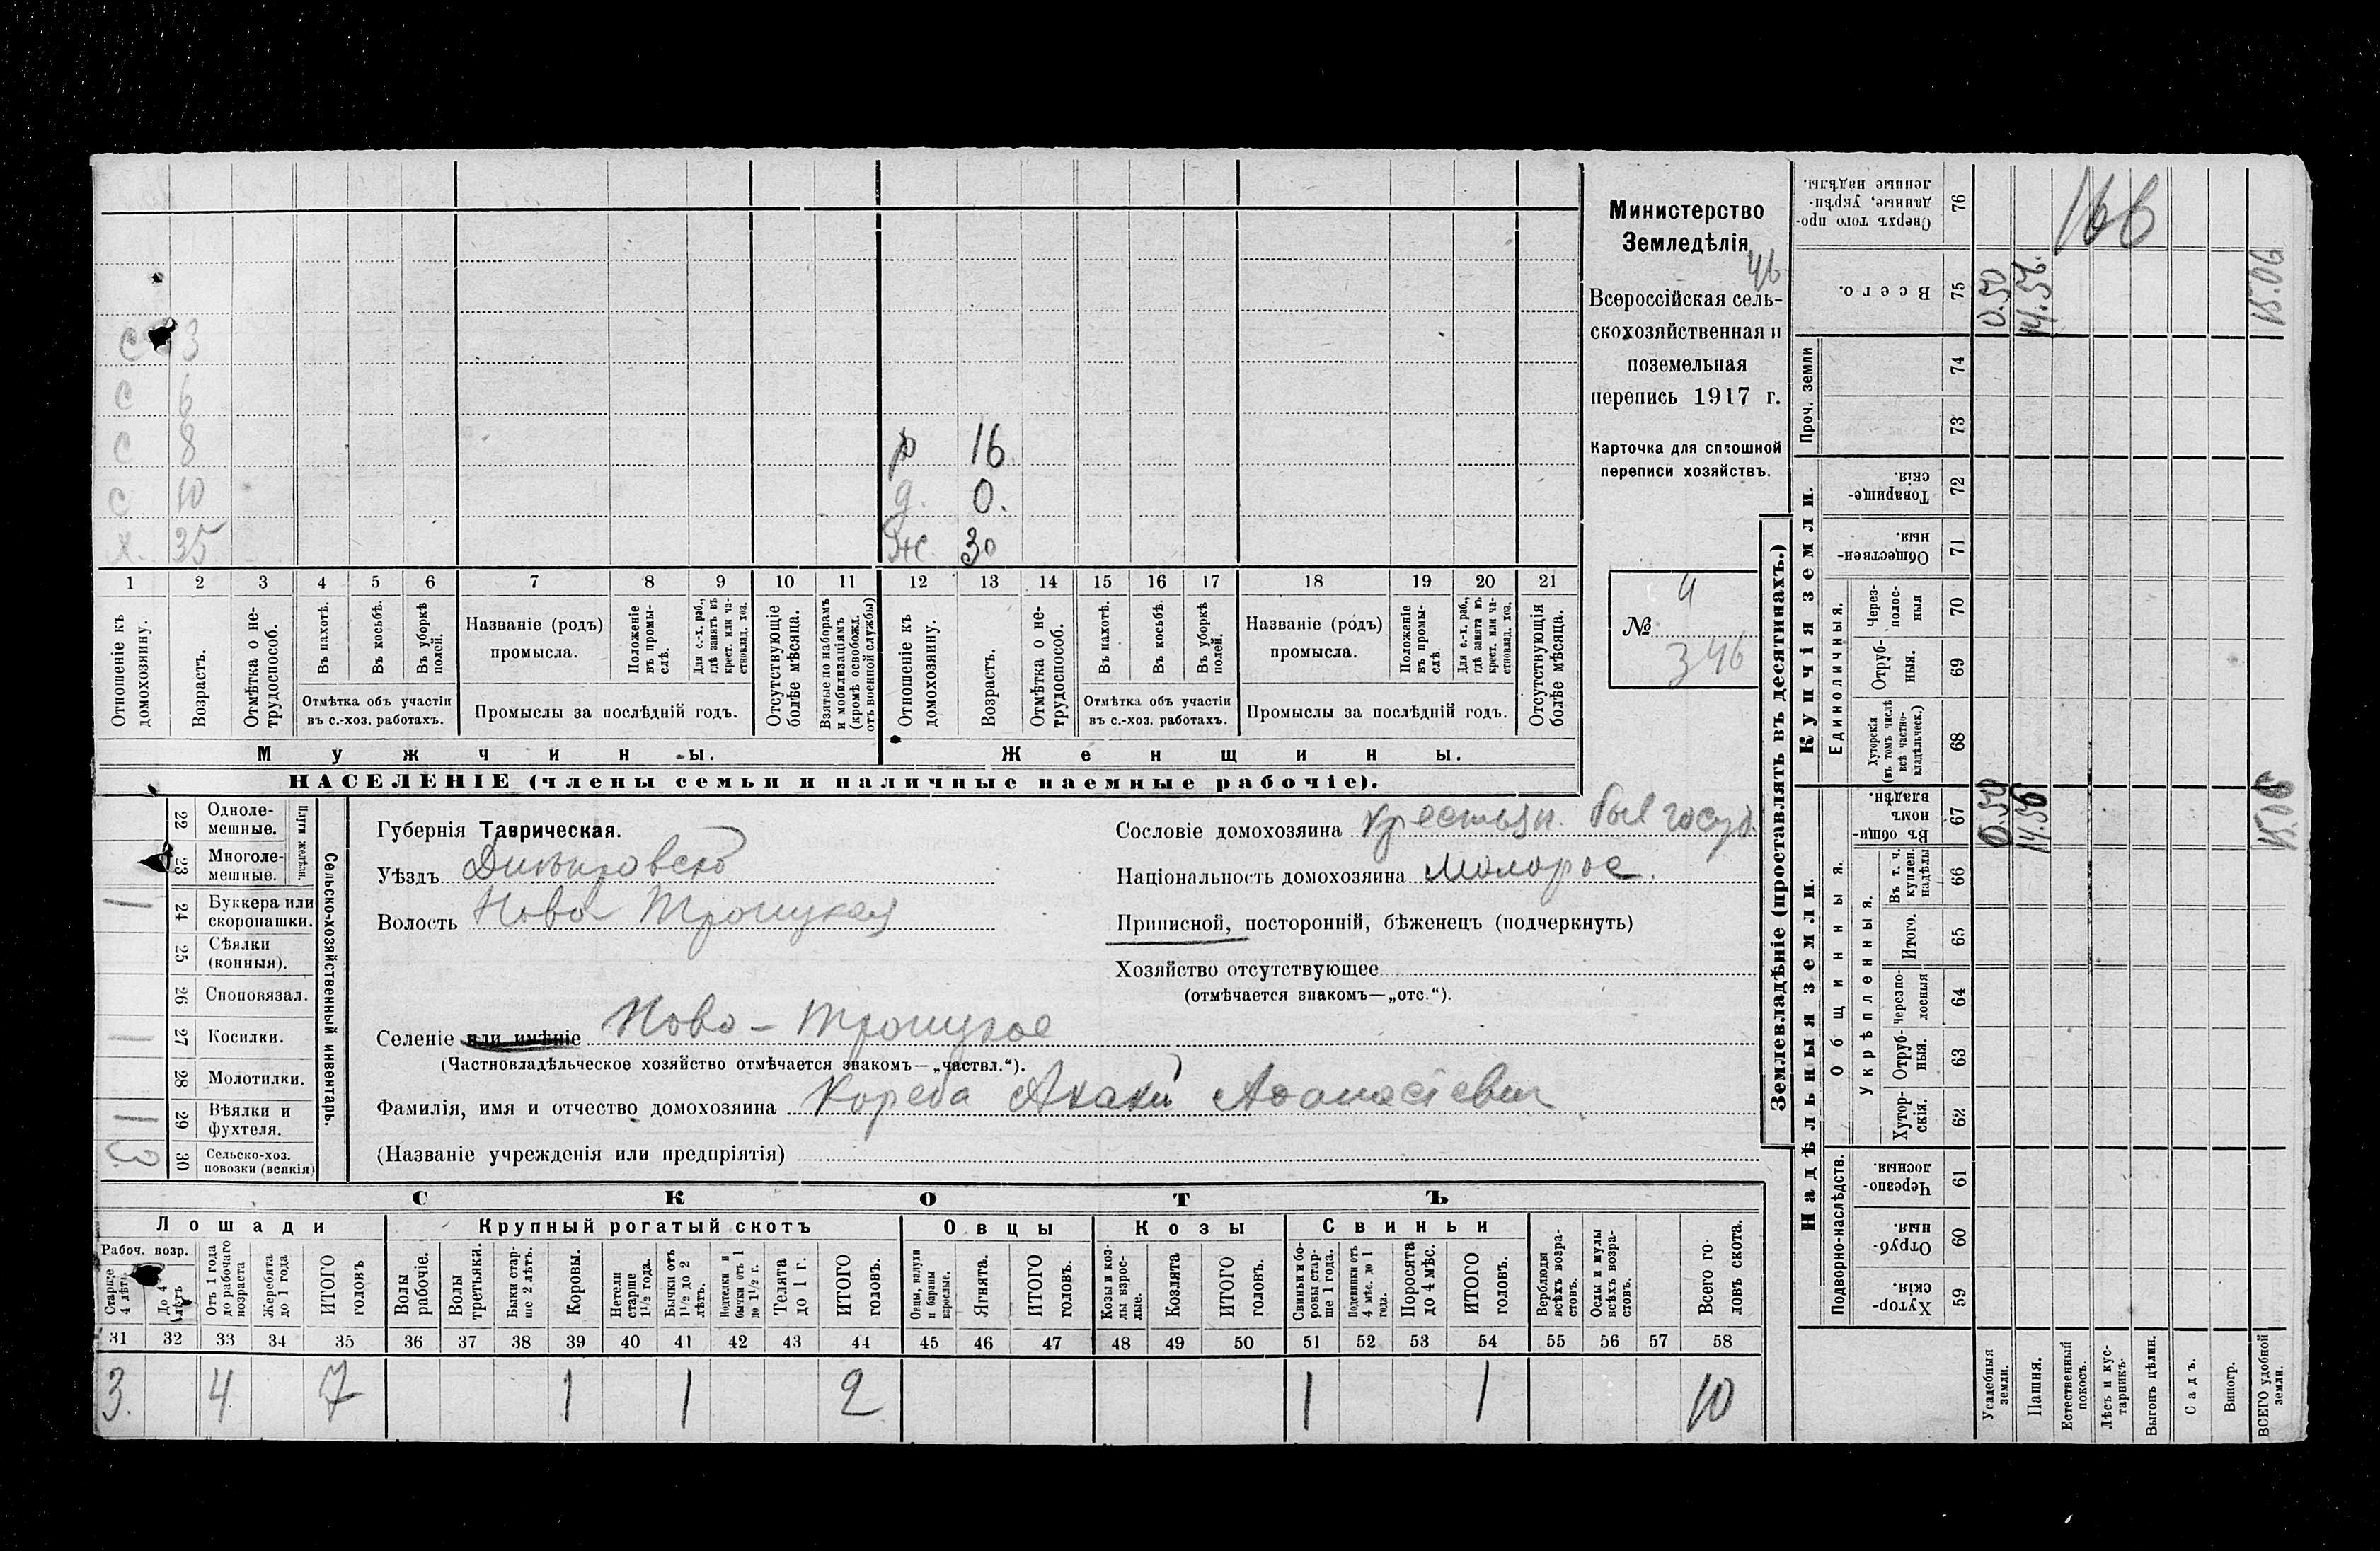 Министерство
Земледѣлія
46
Всероссійская сель-
скохозяйственная и
поземельная
перепись 1917 г.
Карточка для сплошной
переписи хозяйствъ.
4
№
346
с 3
с 6
с 8
с 10
х. 35
р 16
д. 0.
Ж 30
1 2 3 4 5 6 7 8 9 10 11 12 13 14 15 16 17 18 19 20 21
Отношеніе къ домохозяину.
Возрастъ.
Отмѣтка о не-трудоспособ.
Въ пахотѣ.
Въ косьбѣ.
Въ уборкѣ полей.
Отмѣтка объ участіи
въ с.-хоз. работахъ.
Названіе (родъ)
промысла.
Положеніе въ промы-слѣ.
Для с.-х. раб., гдѣ занятъ въ крест. или ча-стновлад. хоз.
Промыслы за послѣдній годъ.
Отсутствующіе болѣе мѣсяца.
Взятые по наборамъ и мобилизаціямъ (кромѣ освобожд. отъ военной службы)
Отношеніе къ домохозяину.
Возрастъ.
Отмѣтка о не-трудоспособ.
Въ пахотѣ.
Въ косьбѣ.
Въ уборкѣ полей.
Отмѣтка объ участіи
въ с.-хоз. работахъ.
Названіе (родъ)
промысла.
Положеніе въ промы-слѣ.
Для с.-х. раб., гдѣ занята въ крест. или ча-стновлад. хоз.
Промыслы за послѣдній годъ.
Отсутствующія болѣе мѣсяца.
Мужчины.
Женщины.
НАСЕЛЕНІЕ (члены семьи и наличные наемные рабочіе).
22 Одноле-мешные.
23 Многоле-мешные.
Плуги желѣзн.
24 Буккера или скоропашки. 1
25 Сѣялки (конныя).
26 Сноповязал.
27 Косилки. 1
28 Молотилки.
29 Вѣялки и фухтеля. 1
30 Сельско-хоз. повозки (всякія) 3
Сельско-хозяйственный инвентарь.
Губернія Таврическая.
Уѣздъ Днѣпровскій
Волость Ново-Троицкая
Сословіе домохозяина крестьян. быв госуд.
Національность домохозяина малорос.
Приписной, посторонній, бѣженецъ (подчеркнуть)
Хозяйство отсутствующее
(отмѣчается знакомъ—„отс.“).
Селеніе или имѣніе Ново-Троицкое
(Частновладѣльческое хозяйство отмѣчается знакомъ—„частвл.“).
Фамилія, имя и отчество домохозяина Кореба Акакій Афанасіевич
(Названіе учрежденія или предпріятія)
СКОТЪ
Лошади
Крупный рогатый скотъ
Овцы
Козы
Свиньи
Рабоч. возр.
Старше 4 лѣтъ
До 4 лѣтъ
Отъ 1 года до рабочаго возраста
Жеребята до 1 года
ИТОГО головъ
Волы рабочіе.
Волы третьяки.
Быки стар-ше 2 лѣтъ.
Коровы.
Нетели старше 1½ года.
Бычки отъ 1½ до 2 лѣтъ.
Подтелки и бычки отъ 1 до 1½ г.
Телята до 1 г.
ИТОГО головъ.
Овцы, валухи и бараны взрослые.
Ягнята.
ИТОГО головъ.
Козы и коз-лы взрос-лые.
Козлята
ИТОГО головъ.
Свиньи и бо-ровы стар-ше 1 года.
Подсвинки отъ 4 мѣс. до 1 года.
Поросята до 4 мѣс.
ИТОГО головъ.
Верблюды всѣхъ возра-стовъ.
Ослы и мулы всѣхъ возра-стовъ.
Всего го-ловъ скота.
31 32 33 34 35 36 37 38 39 40 41 42 43 44 45 46 47 48 49 50 51 52 53 54 55 56 57 58
3. 4 7 1 1 2 1 1 10
Землевладѣніе (проставлять въ десятинахъ.)
Надѣльныя земли.
Купчія земли.
Проч. земли
Подворно-наслѣдств.
Общинныя.
Укрѣпленныя.
Единоличныя.
Сверхъ того про-данные, укрѣп-ленные надѣлы. 76
166
Всего. 75 0.50 14.56. 15.06
74
73
Товарище-скія. 72
Обществен-ныя. 71
Через-полос-ныя 70
Отруб-ныя. 69
Хуторскія (въ томъ числѣ всѣ частно-владѣльческ.) 68
Въ общи-номъ владѣн. 67 0.50 14.56 15.06
Въ т. ч. куплен. надѣлы 66
Итого. 65
Черезпо-лосныя 64
Отруб-ныя. 63
Хутор-скія. 62
Черезпо-лосныя. 61
Отруб-ныя. 60
Хутор-скія. 59
Усадебныя земли.
Пашня.
Естественный покосъ.
Лѣсъ и кус-тарникъ.
Выгонъ цѣлин.
Садъ.
Виногр.
ВСЕГО удобной земли.